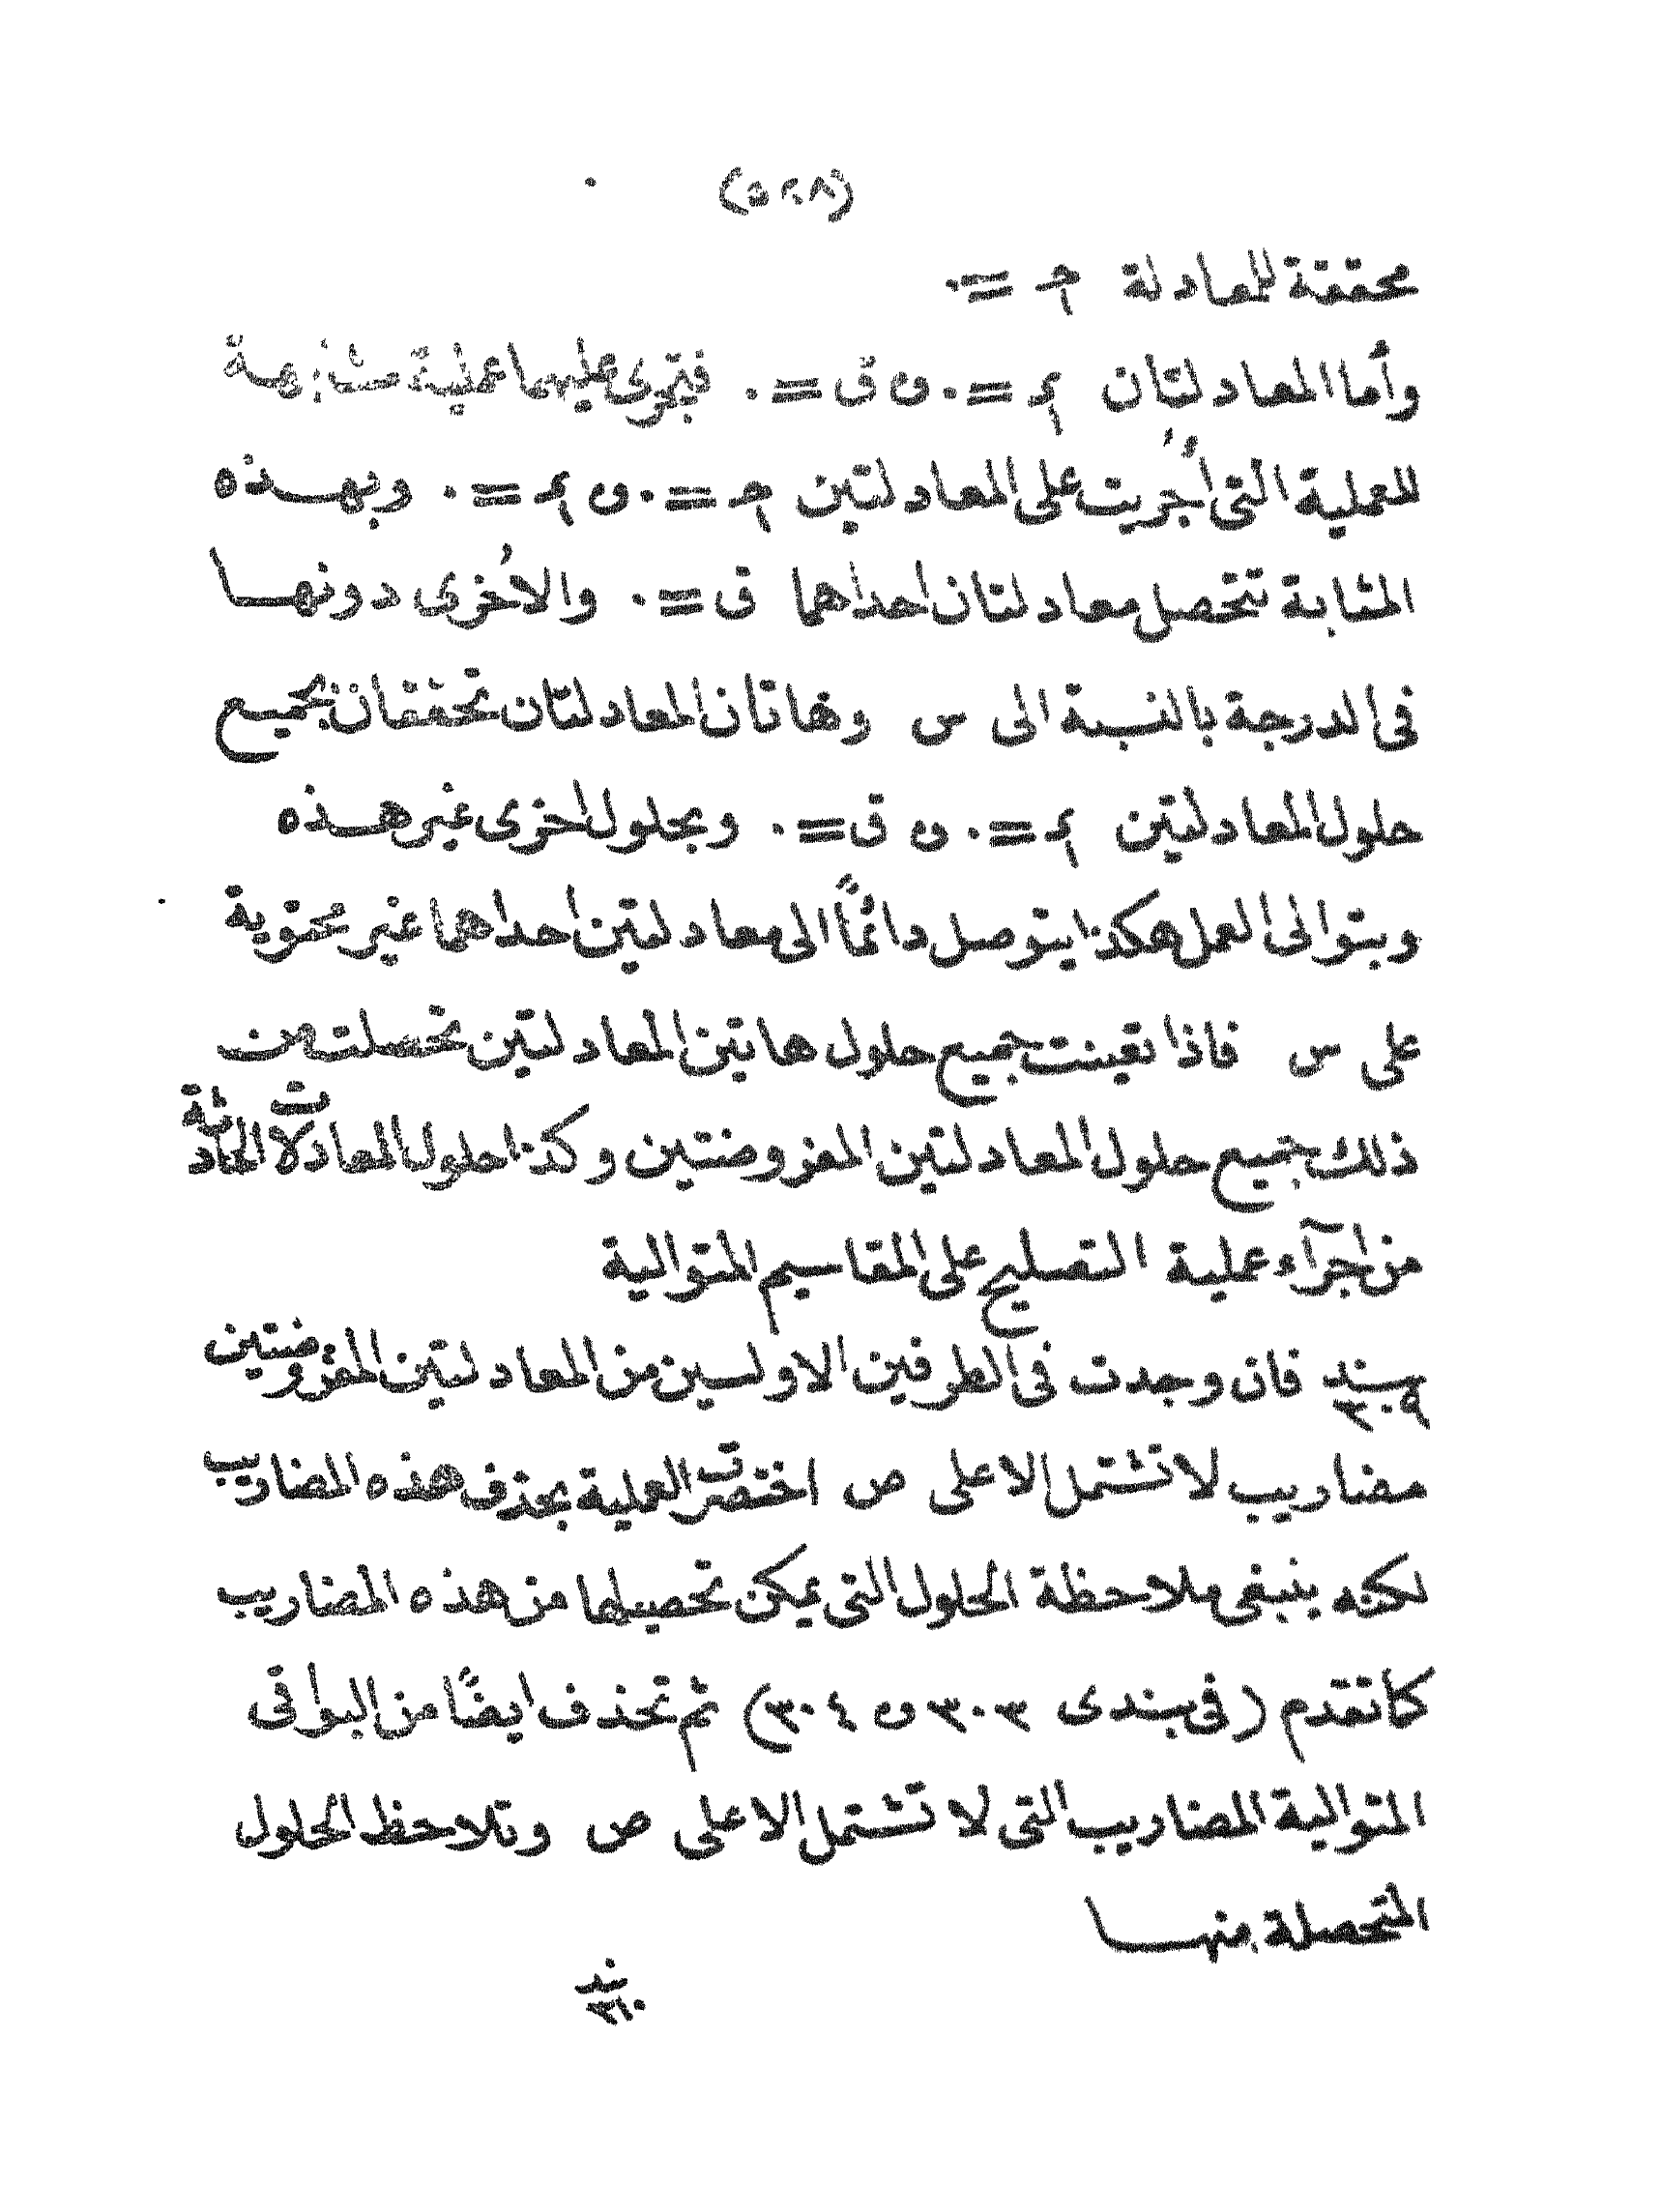 (٥٢٨)
محققة للمعادلة حـ١ = ٠
وأما المعادلتان م١ = ٠ و ق = ٠ فتجرى عليهما عملية مشابهة
للعملية التى أُجريت على المعادلتين حـ١ = ٠ و م١ = ٠ وبهذه
المثابة تتحصل معادلتان احداهما ق = ٠ والاُخرى دونها
فى الدرجة بالنسبة الى س وهاتان المعادلتان تحققان بجميع
حلول المعادلتين م١ = ٠ و ق = ٠ وبحلول اخرى غير هذه
وبتوالى العمل هكذا يتوصل دائمًا الى معادلتين احداهما غير محتوية
على س فاذا تعينت جميع حلول هاتين المعادلتين تحصلت من
ذلك جميع حلول المعادلتين المفروضتين وكذا حلول المعادلات الحادثة
من اجرآء عملية التصليح على المقاسيم المتوالية
بند ٣٠٩ فان وجدت فى الطرفين الاولسين من المعادلتين المفروضتين
مضاريب لا تشتمل الا على ص اختصرت العملية بحذف هذه المضاريب
لكنه ينبغى ملاحظة الحلول التى يمكن تحصيلها من هذه المضاريب
كما تقدم (فى بندى ٣٠٣ و ٣٠٤) ثم تحذف ايضًا من البواقى
المتوالية المضاريب التى لا تشتمل الا على ص وتلاحظ الحلول
المتحصلة منها
بند ٣١٠